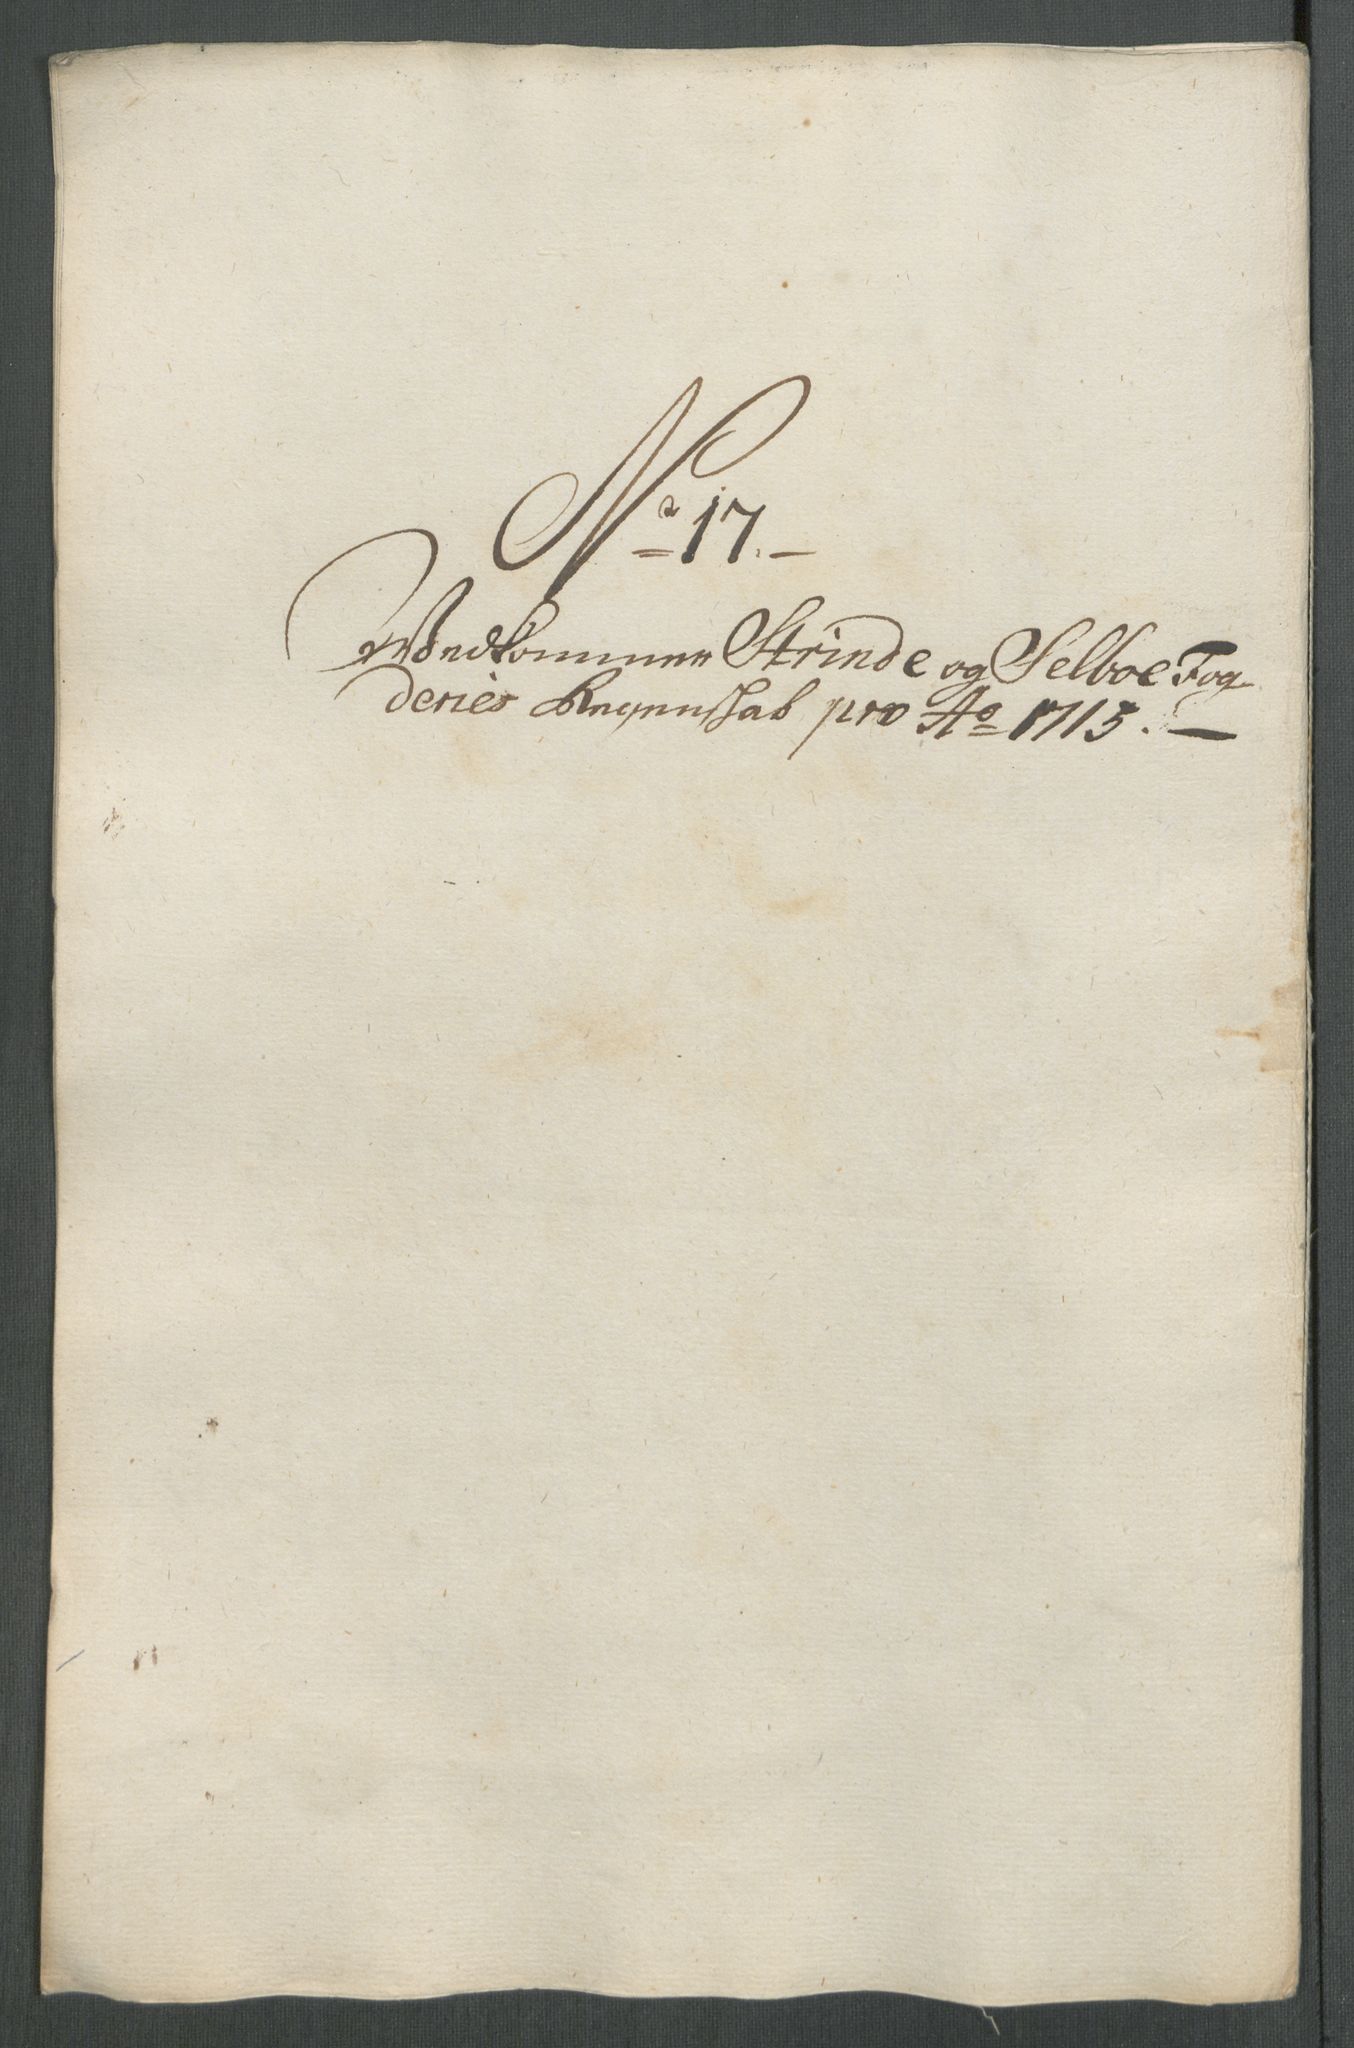 No 17.
Wedkommer Strinde og Selboe Fog-
deries Regenskab pro Ao 1715.